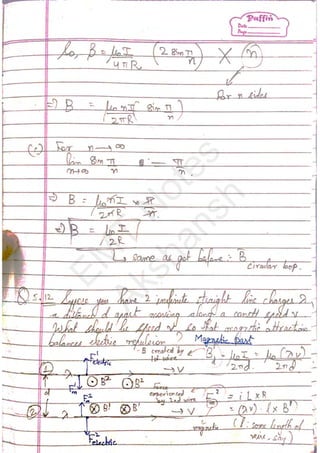 Puffin
Date
Page
So, B = μ₀I/4πR (2 sin π/n) × (n)
for n sides
⇒ B = μ₀nI/2πR (sin π/n)
(c) For n → ∞
lim n→∞ sin π/n = π/n.
⇒ B = μ₀nI/2πR × π/n.
⇒ B = μ₀I/2R
↳ same as got before ∴ B circular loop.
Q 5.12. Suppose you have 2 infinite straight line charges λ,
a distance d apart moving along a constt speed v.
What should be speed v, so that magnetic attraction
balances electric repulsion? Magnetic part
B created by 1st wire B₁ = μ₀I/2πd = μ₀(λv)/2πd
F¹ electric
① λ → v
F¹m ⊙B² ⊙B²
d
Force experienced by 2nd wire F²m = i L × B
② λ F²m ⊗B¹ ⊗B¹ → v = (λv) (l × B¹)
F² electric
magnetic (l: some length of wire - say)